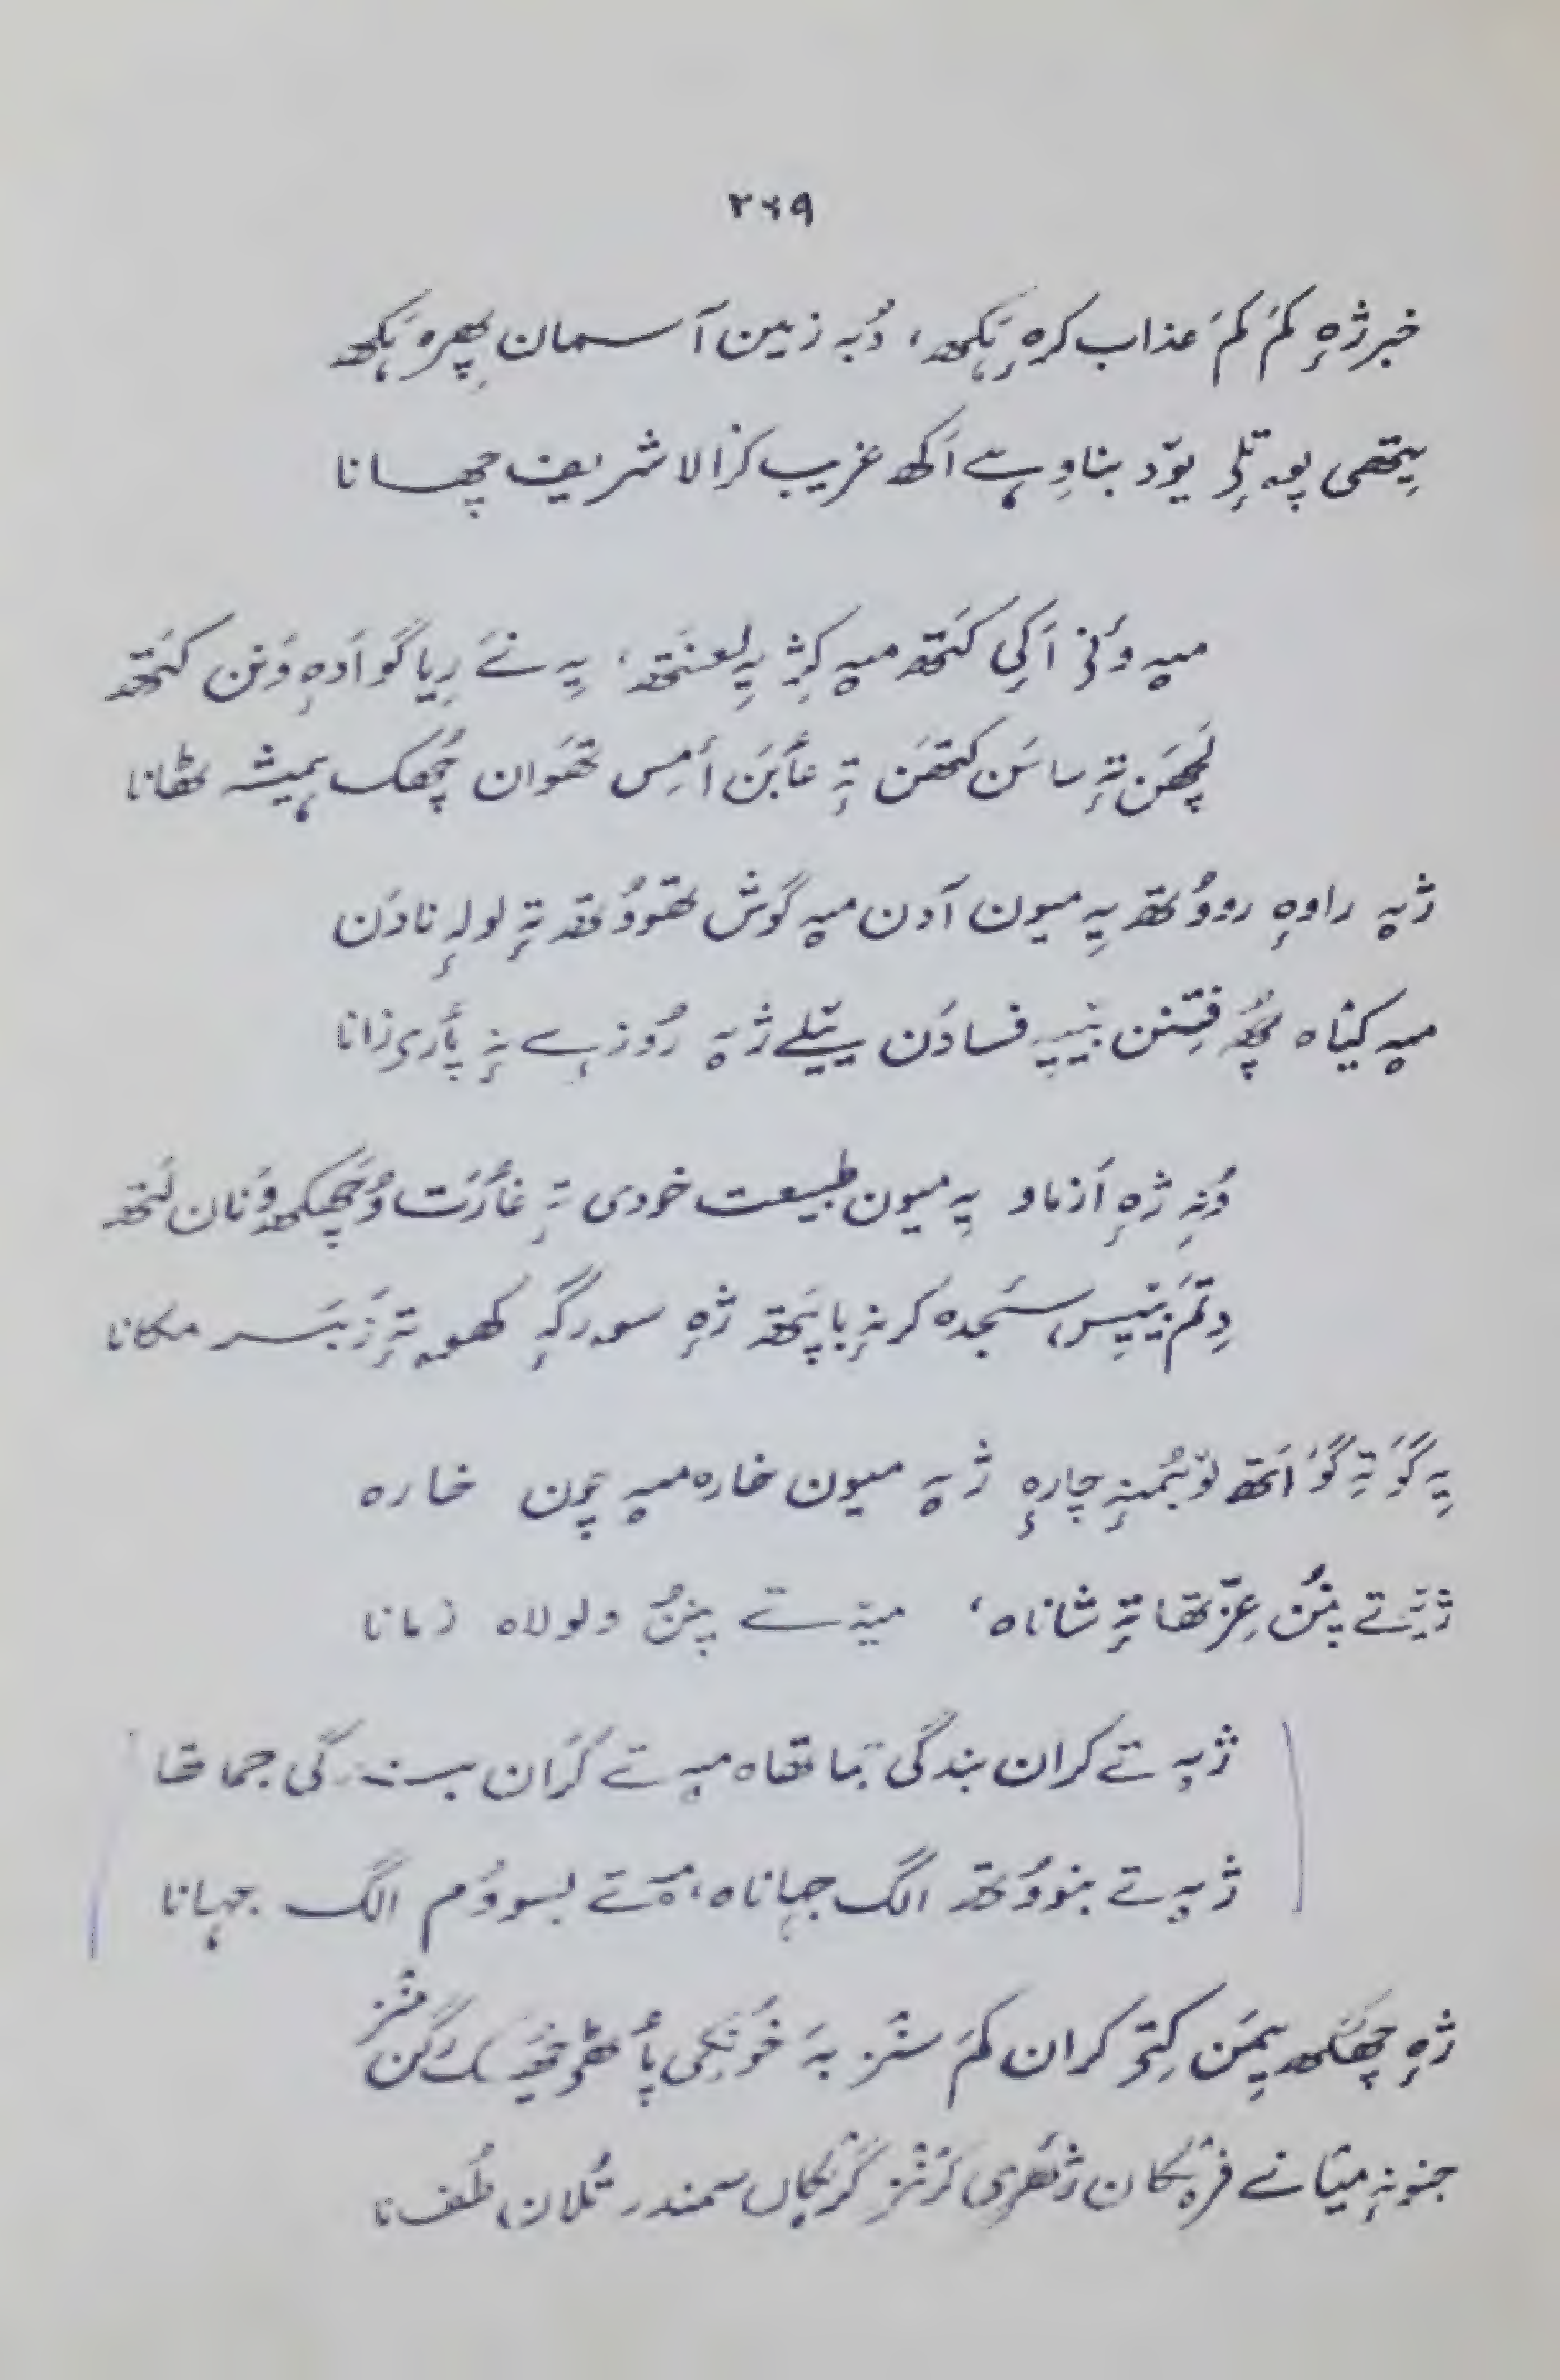 ۲۶۹
خبر ژٕہ کَم کَم عذاب کرٕہ ہَکھ، دُبہ زمین آسمان پھِرہ ہَکھ
یِتھی پہ تلِہ یوٚد بناوِ ہے اَکھ غریب کرٛالا شریف چھسانا
میہ وٕنۍ اَکی کَتھ میہ کِژ یہِ لعنَتھ، یہِ نَے رِیا گوٚ اَدٕہ وَنن کَتھ
لَچھَن تہٕ ساسَن کَتھَن تہٕ عٲبَن أمِس تھَوان چھُک ہمیشہ ٹھانا
ژیہ راوٕہ رووُتھ یہِ میون آدن میہ گوش تھووُتھ تہٕ لولہٕ نادَن
میہ کیاہ چھُ فِتنن بنیہِ فسادَن یتیلے ژیہ رُوزہے نہٕ پٲری زانا
وُنہِ ژٕہ اَزماو یہِ میون طبیعت خودی تہٕ غٲرَت وُچھکھ وَنان لَتھ
دِتَم بنیِس، سَجدہ کرنہٕ باپَتھ ژٕہ سورگہٕ کھوتہٕ زَبَسر مکانا
یہِ گوٚ تہِ گوٚ اَتھ لوٚبُمنہٕ چارٕہ ژیہ میون خارہ میہ چون خارہ
ژیہ تے پنُن عِزّتھا تہٕ شاناہ، میہ تے پنُن ولولاہ زمانا
ژیہ تے کران بندگی جماتھاہ میہ تے کران بندگی جماتھا
ژیہ تے بنووُتھ الگ جہاناہ، میہ تے بسووُم الگ جہانا
ژٕہ چھکھ یِمَن کِتۍ کران کَم سنٛز بہَ خۄنکی پٲٹھۍ
جنونہٕ میانے سمندر تُلان، طُفانا